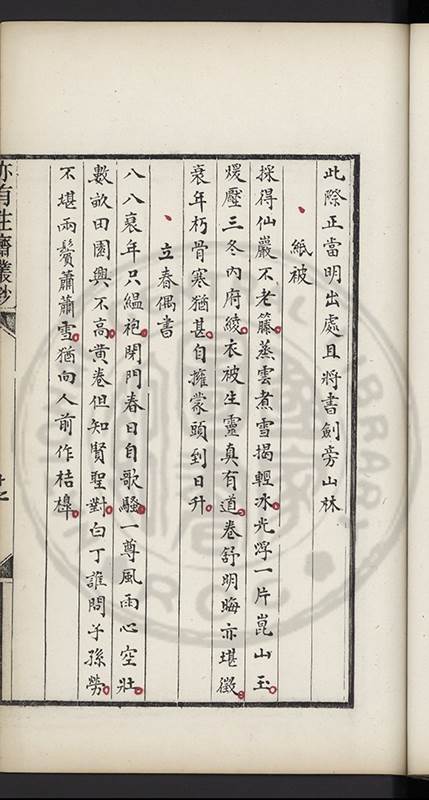 此際正當明出處且將書劍旁山林
紙被
採得仙巖不老籐蒸雲煮雪揭輕冰光浮一片崑山玉
煖壓三冬內府綾衣被生靈真有道卷舒明晦亦堪徵
衰年朽骨寒猶甚自擁蒙頭到日升
立春偶書
八八衰年只縕袍閉門春日自歌騷一尊風雨心空壯
數畝田園興不高黃卷但知賢聖對白丁誰問子孫勞
不堪兩鬢蕭蕭雪猶向人前作桔槹
亦有生齋叢鈔